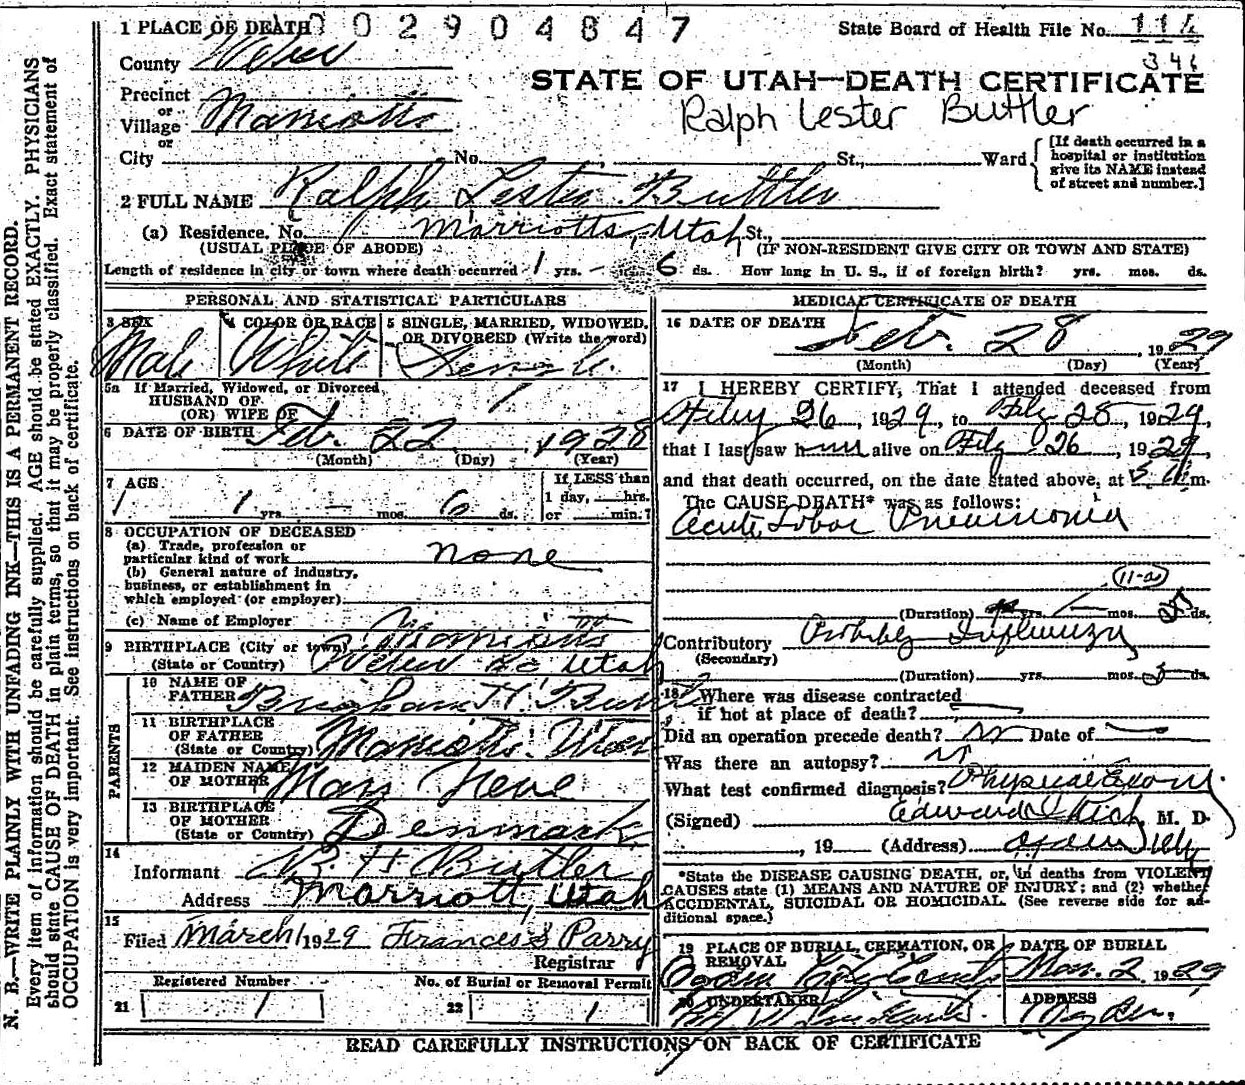 1 PLACE OF DEATH 0 0 2 9 0 4 8 4 7
State Board of Health File No. 114
346
County Weber
STATE OF UTAH—DEATH CERTIFICATE
Precinct
or
Village Marriotts
or
Ralph Lester Buttler
City No. St., Ward
[If death occurred in a
hospital or institution
give its NAME instead
of street and number.]
2 FULL NAME Ralph Lester Buttler
(a) Residence. No. Marriotts, Utah St.,
(USUAL PLACE OF ABODE) (IF NON-RESIDENT GIVE CITY OR TOWN AND STATE)
Length of residence in city or town where death occurred 1 yrs. - 6 ds. How long in U. S., if of foreign birth? yrs. mos. ds.
PERSONAL AND STATISTICAL PARTICULARS
3 SEX
Male
4 COLOR OR RACE
White
5 SINGLE, MARRIED, WIDOWED,
OR DIVORCED (Write the word)
Single.
5a If Married, Widowed, or Divorced
HUSBAND OF
(OR) WIFE OF
6 DATE OF BIRTH Feb. 22 1928
(Month) (Day) (Year)
7 AGE
1 yrs. — mos. 6 ds.
If LESS than
1 day, hrs.
or min.?
8 OCCUPATION OF DECEASED
(a) Trade, profession or
particular kind of work none
(b) General nature of industry,
business, or establishment in
which employed (or employer)
(c) Name of Employer
9 BIRTHPLACE (City or town) Marriotts
(State or Country) Weber Co Utah
PARENTS
10 NAME OF
FATHER Brigham H. Butler
11 BIRTHPLACE
OF FATHER
(State or Country) Marriotts.
12 MAIDEN NAME
OF MOTHER Mary
13 BIRTHPLACE
OF MOTHER
(State or Country) Denmark
14
Informant B. H Butler
Address Marriott, Utah
15
Filed March 1 1929 Frances S Parry
Registrar
Registered Number
21 1
No. of Burial or Removal Permit
22 1
MEDICAL CERTIFICATE OF DEATH
16 DATE OF DEATH
Feb. 28, 1929
(Month) (Day) (Year)
17 I HEREBY CERTIFY, That I attended deceased from
Feby 26, 1929, to Feby 28, 1929,
that I last saw h im alive on Feby 26, 1929,
and that death occurred, on the date stated above, at 5 m.
The CAUSE DEATH* was as follows:
Acute Lobar Pneumonia
11-a
(Duration) yrs. mos. ds.
Contributory Probably Influenza
(Secondary)
(Duration) yrs. mos. 3 ds.
18 Where was disease contracted
if not at place of death?
Did an operation precede death? no Date of
Was there an autopsy? no
What test confirmed diagnosis? Physical Exam.
(Signed) Edward I Rich, M. D.
, 19 (Address) Ogden Utah
*State the DISEASE CAUSING DEATH, or, in deaths from VIOLENT
CAUSES state (1) MEANS AND NATURE OF INJURY; and (2) whether
ACCIDENTAL, SUICIDAL OR HOMICIDAL. (See reverse side for ad-
ditional space.)
19 PLACE OF BURIAL, CREMATION, OR
REMOVAL
Ogden City Cemetery
DATE OF BURIAL
Mar. 2 1929
20 UNDERTAKER
ADDRESS
Ogden.
READ CAREFULLY INSTRUCTIONS ON BACK OF CERTIFICATE
N. B.—WRITE PLAINLY WITH UNFADING INK—THIS IS A PERMANENT RECORD.
Every item of information should be carefully supplied. AGE should be stated EXACTLY. PHYSICIANS
should state CAUSE OF DEATH in plain terms, so that it may be properly classified. Exact statement of
OCCUPATION is very important. See instructions on back of certificate.